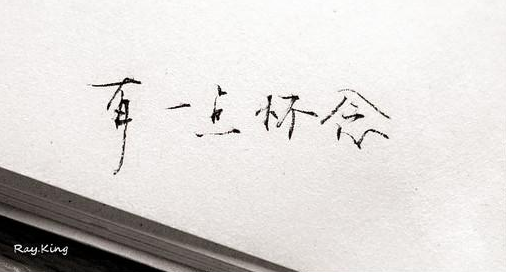 有一点怀念
Ray.King